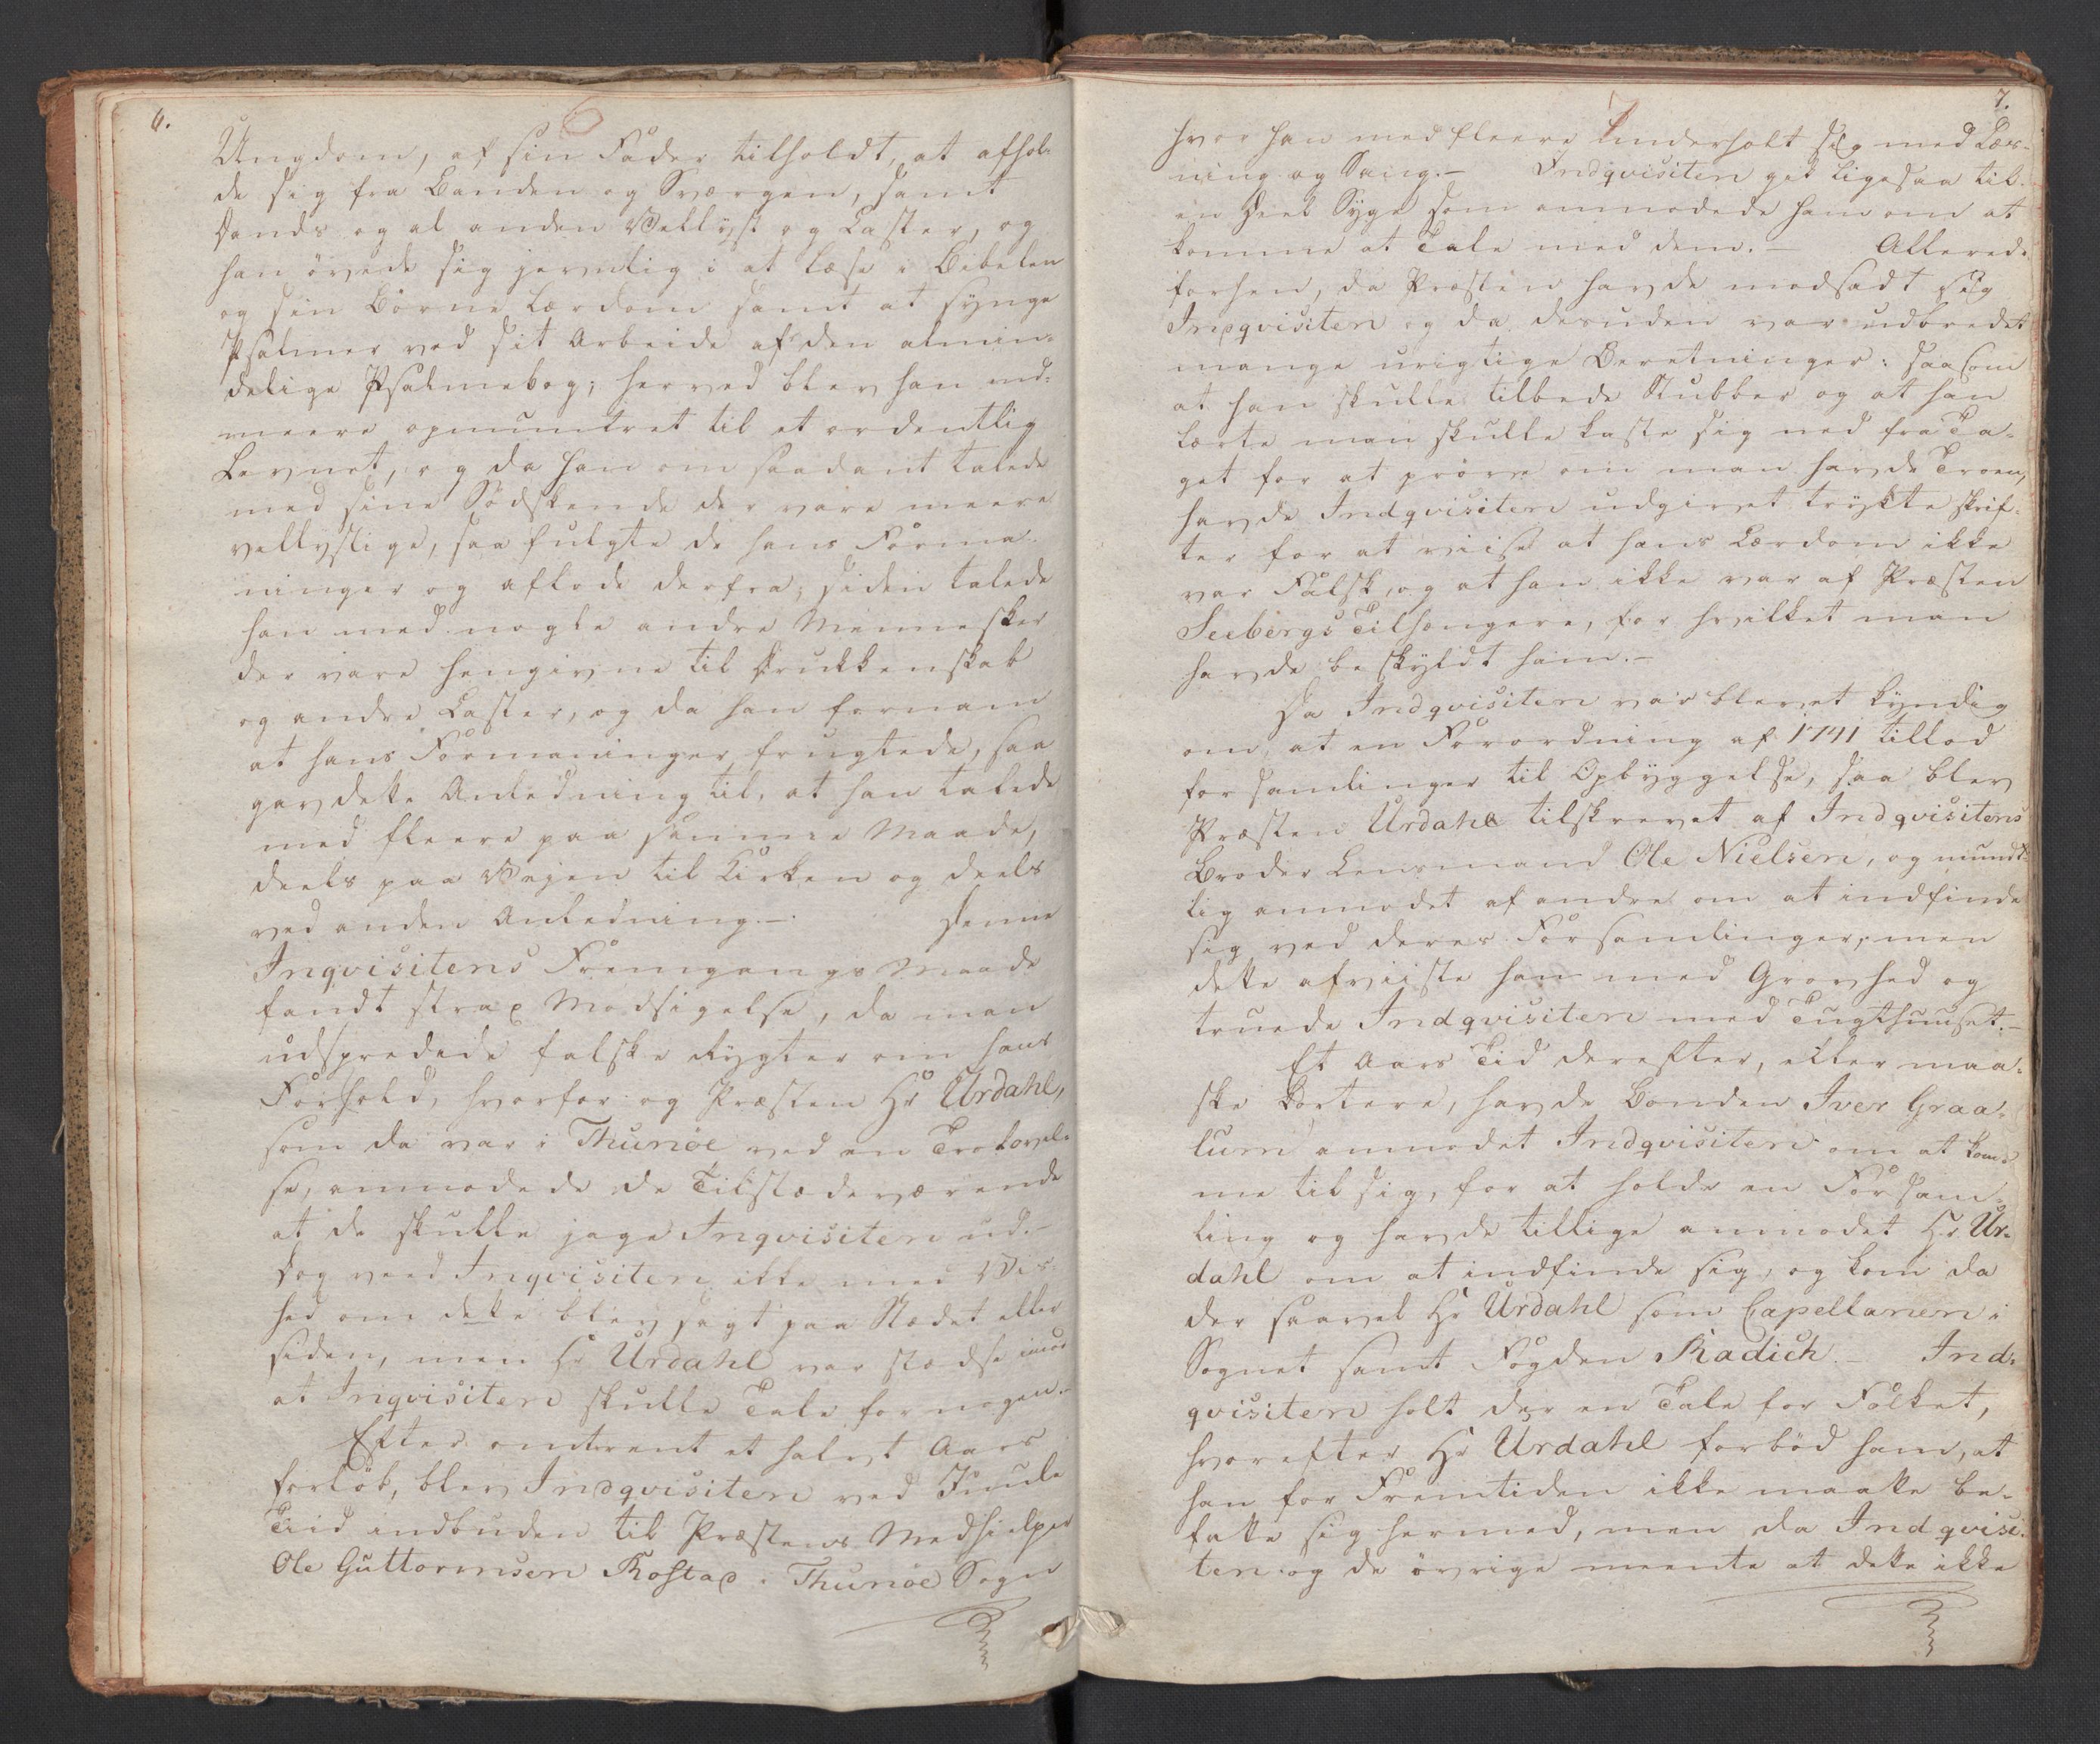 6.
6
Ungdom, af sin Fader tilholdt, at afhol-
de sig fra Banden og Sværgen, samt
Dands og al anden Vellyst og Laster, og
han øvede sig jevnlig i at læse i Bibelen
og sin Børne Lærdom samt at synge
Psalmer ved sit Arbeide af den almin-
delige Psalmebog; herved blev han end-
meere opmuntret til et ordentlig
Levnet, og da han om saadant talede
med sine Sødskende der vare meere
vellystige, saa fulgte de hans Forma-
ninger og aflode derfra; siden talede
han med nogle andre Mennesker
der vare hengivne til Drukkenskab
og andre Laster, og da han fornam
at hans Formaninger frugtede, saa
gav dette Anledning til, at han talede
med fleere paa samme Maade,
deels paa Vejen til Kirken og deels
ved anden Anledning.- Denne
Inqvisitens Fremgangs Maade
fandt strax Modsigelse, da man
udspredede falske Rygter om hans
Forhold, hvorfor og Præsten Hr Urdahl,
som da var i Thunøe ved en Trolovel-
se, anmodede de Tilstædeværende
at de skulle jage Inqvisiten ud.-
Dog veed Inqvisiten ikke med Vis-
hed om dette blev sagt paa Stædet eller
siden, men Hr Urdahl var stædse imod
at Inqvisiten skulle Tale for nogen.-
Efter omtrent et halvt Aars
forløb, blev Indqvisiten ved Juule
Tiid indbuden til Præstens Medhielper
Ole Guttormsen Rostad i Thunøe Sogn
7.
7
hvor han med fleere underholt sig med Læs-
ning og Sang.- Indqvisiten gik ligesaa til
en Deel Syge som anmodede ham om at
komme at Tale med dem.- Allerede
forhen, da Præsten havde modsadt sig
Inqvisiten og da desuden var udbredet
mange urigtige Beretninger: saasom
at han skulle tilbede Stubber og at han
lærte man skulle kaste sig ned fra Ta-
get for at prøve om man havde Troen,
havde Indqvisiten udgivet trykte skrif-
ter for at viise at hans Lærdom ikke
var Falsk, og at han ikke var af Præsten
Seebergs Tilhængere, for hvilket man
havde beskyldt ham.-
Da Indqvisiten var blevet kyndig
om, at en Forordning af 1741 tillod
forsamlinger til Opbyggelse, saa blev
Præsten Urdahl tilskrevet af Indqvisitens
Broder Lensmand Ole Nielsen, og mundt-
lig anmodet af andre om at indfinde
sig ved deres Forsamlinger, men
dette afviiste han med Grovhed og
truede Indqvisiten med Tugthuuset.-
Et Aars Tid derefter, eller maa-
ske kortere, havde Bonden Iver Graa-
lum anmodet Indqvisiten om at kom-
me til sig, for at holde en Forsam-
ling og havde tillige anmodet Hr Ur-
dahl om at indfinde sig, og kom da
der saavel Hr Urdahl som Capellanen i
Sognet samt Fogden Radich.- Ind-
qvisiten holt der en Tale for Folket,
hvorefter Hr Urdahl forbød ham, at
han for Fremtiden ikke maatte be-
fatte sig hermed, men da Indqvisi-
ten og de øvrige meente at dette ikke